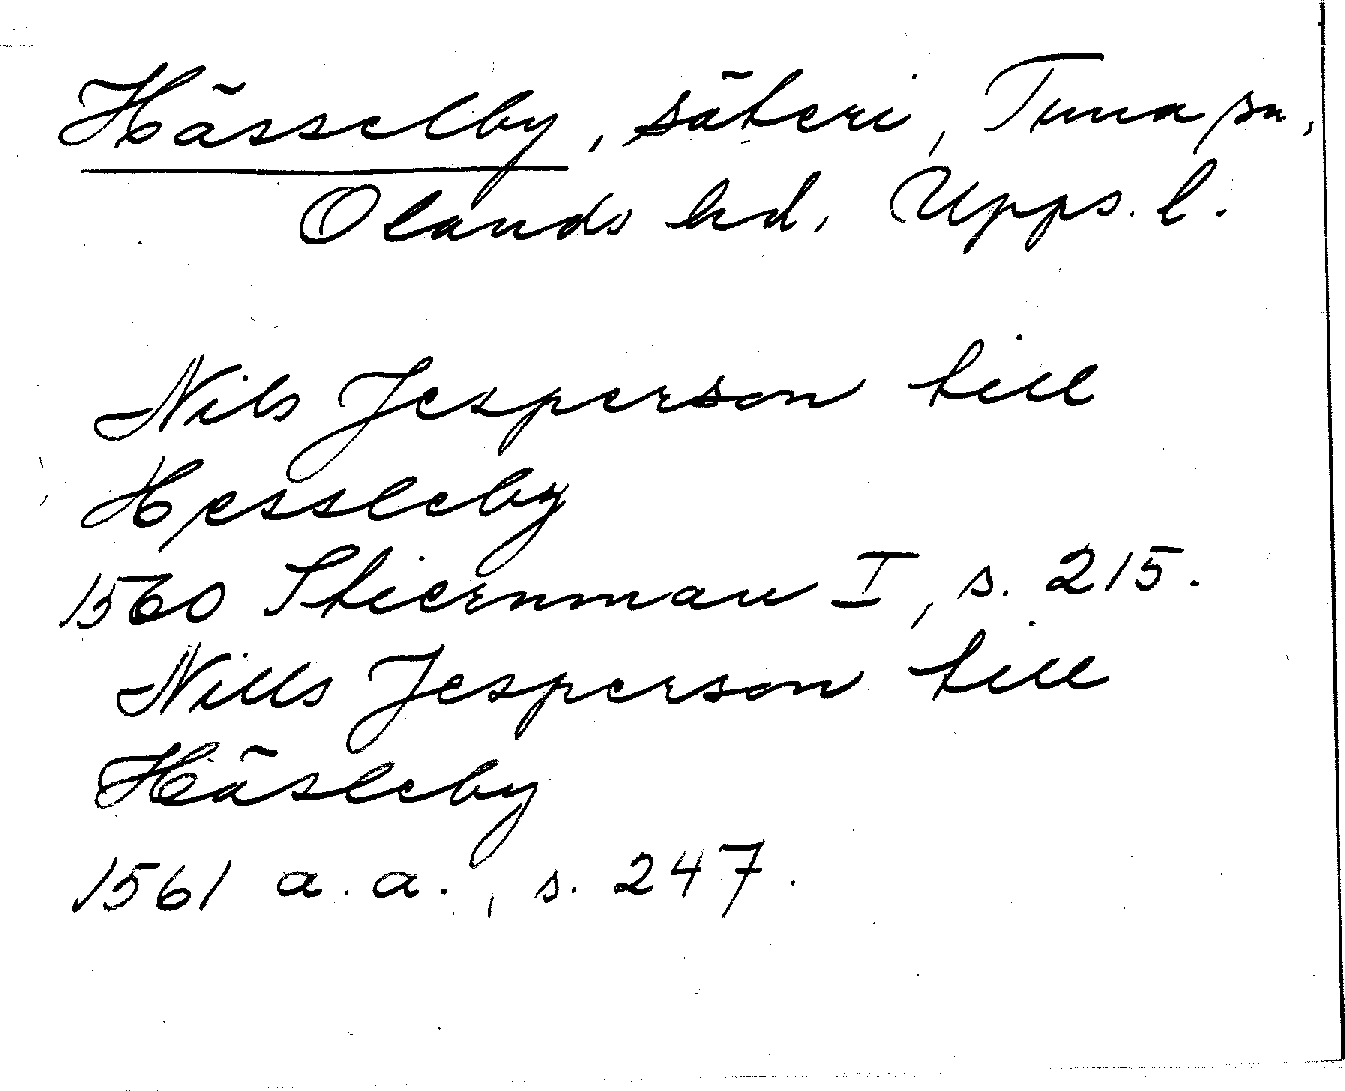 Hässelby, säteri, Tuna sn,
Olands hd, Upps. l.
Nils Jesperson till
Hessleby
1560 Stiernman I, s. 215.
Nills Jesperson till
Häsleby
1561 a. a., s. 247.